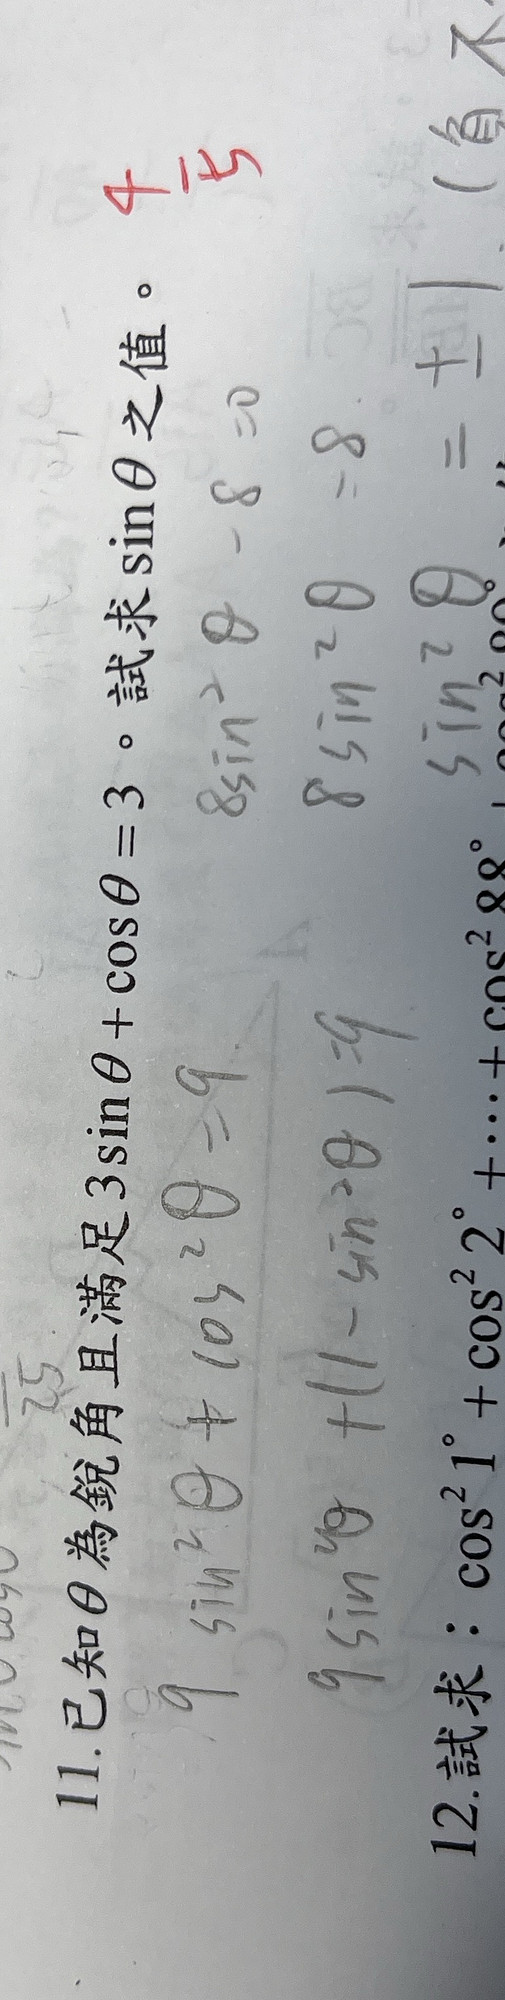 11.已知θ為銳角且滿足3sinθ+cosθ=3。試求sinθ之值。 4/5
9 sin²θ + cos²θ = 9
8sin²θ - 8 = 0
9 sin²θ + (1 - sin²θ) = 9
8 sin²θ = 8
sin²θ = ± 1. (負不
12.試求：cos²1°+cos²2°+⋯+cos²88°